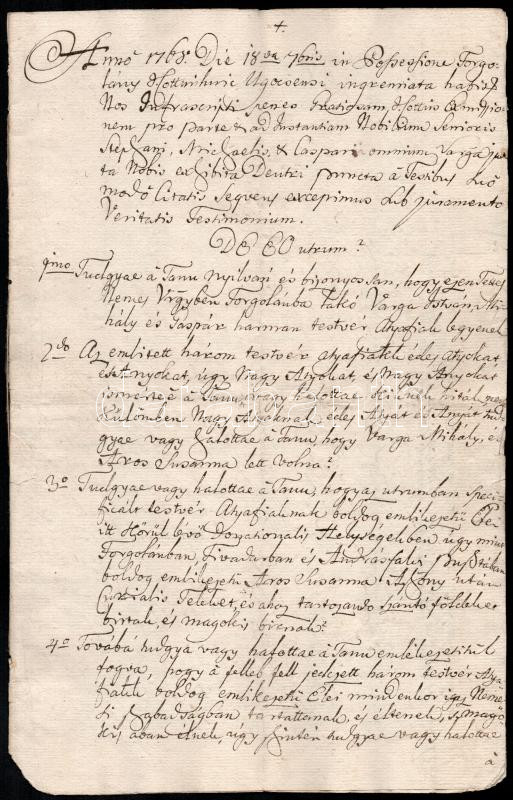 Anno 1765. Die 18va 7bris in Possessione Forgo-
lány Cottui Ugocsensi ingremiata habita
Nos Infrascripti penes Gratiosam, Cottus Exmissio-
nem pro parte & ad Instantiam Nobilium Senioris
Stephani, Michaelis, & Caspari omnium Varga juxta
Nobis exhibita Deutri puncta à Testibus
modo Citatis Seqvens excepimus sub juramento
Veritatis Testimonium.
DE EO utrum?
1mo Tudgyae à Tanu nyilván és bizonyossan, hogy ezen Teks
Nemes Vgyében Forgolánba lakó Várga István, Mi-
hály és Gáspár hárman testvér Atyafiak legyenek
2do Az emlitett három testvér atyafiakk édes Atyokat
és Anyokat, úgy Nagy Atyokat, és Nagy Anyokat
ismérte è a Tanu, vagy hallottae
Különben Nagy Atyoknak, édes Attyát és Annyát tud-
gyae vagy hallottae à Tanu, hogy Varga Mihály, és
Aros Susanna lett volna?
3o Tudgyae vagy hallottae à Tanu, hogy az utrumban speci-
ficált testvér Atyafiaknak boldog emlékezetü Elei
itt Körül lévö Donationalis Helységekben, ugy mint
Forgolánban, Tivadarban és Andrásfalvi Pusztában
boldog emlékezetü Aros Susanna Aszony után
Curialis Telket, és ahoz tartozando szántó földeket
birtak, és magok is birnak?
4o Továbá tudgya vagy hallottae à Tanu emlékezetitül
fogva, hogy a fellebb fell jedzett három testvér Atya-
fiakk boldog emlékezetü Elei mindenkor igaz Neme-
si szabadságban tartattattanak, és éltenek, s mago
k is abban élnek, úgy szintén tudgyae vagy hallottae
à